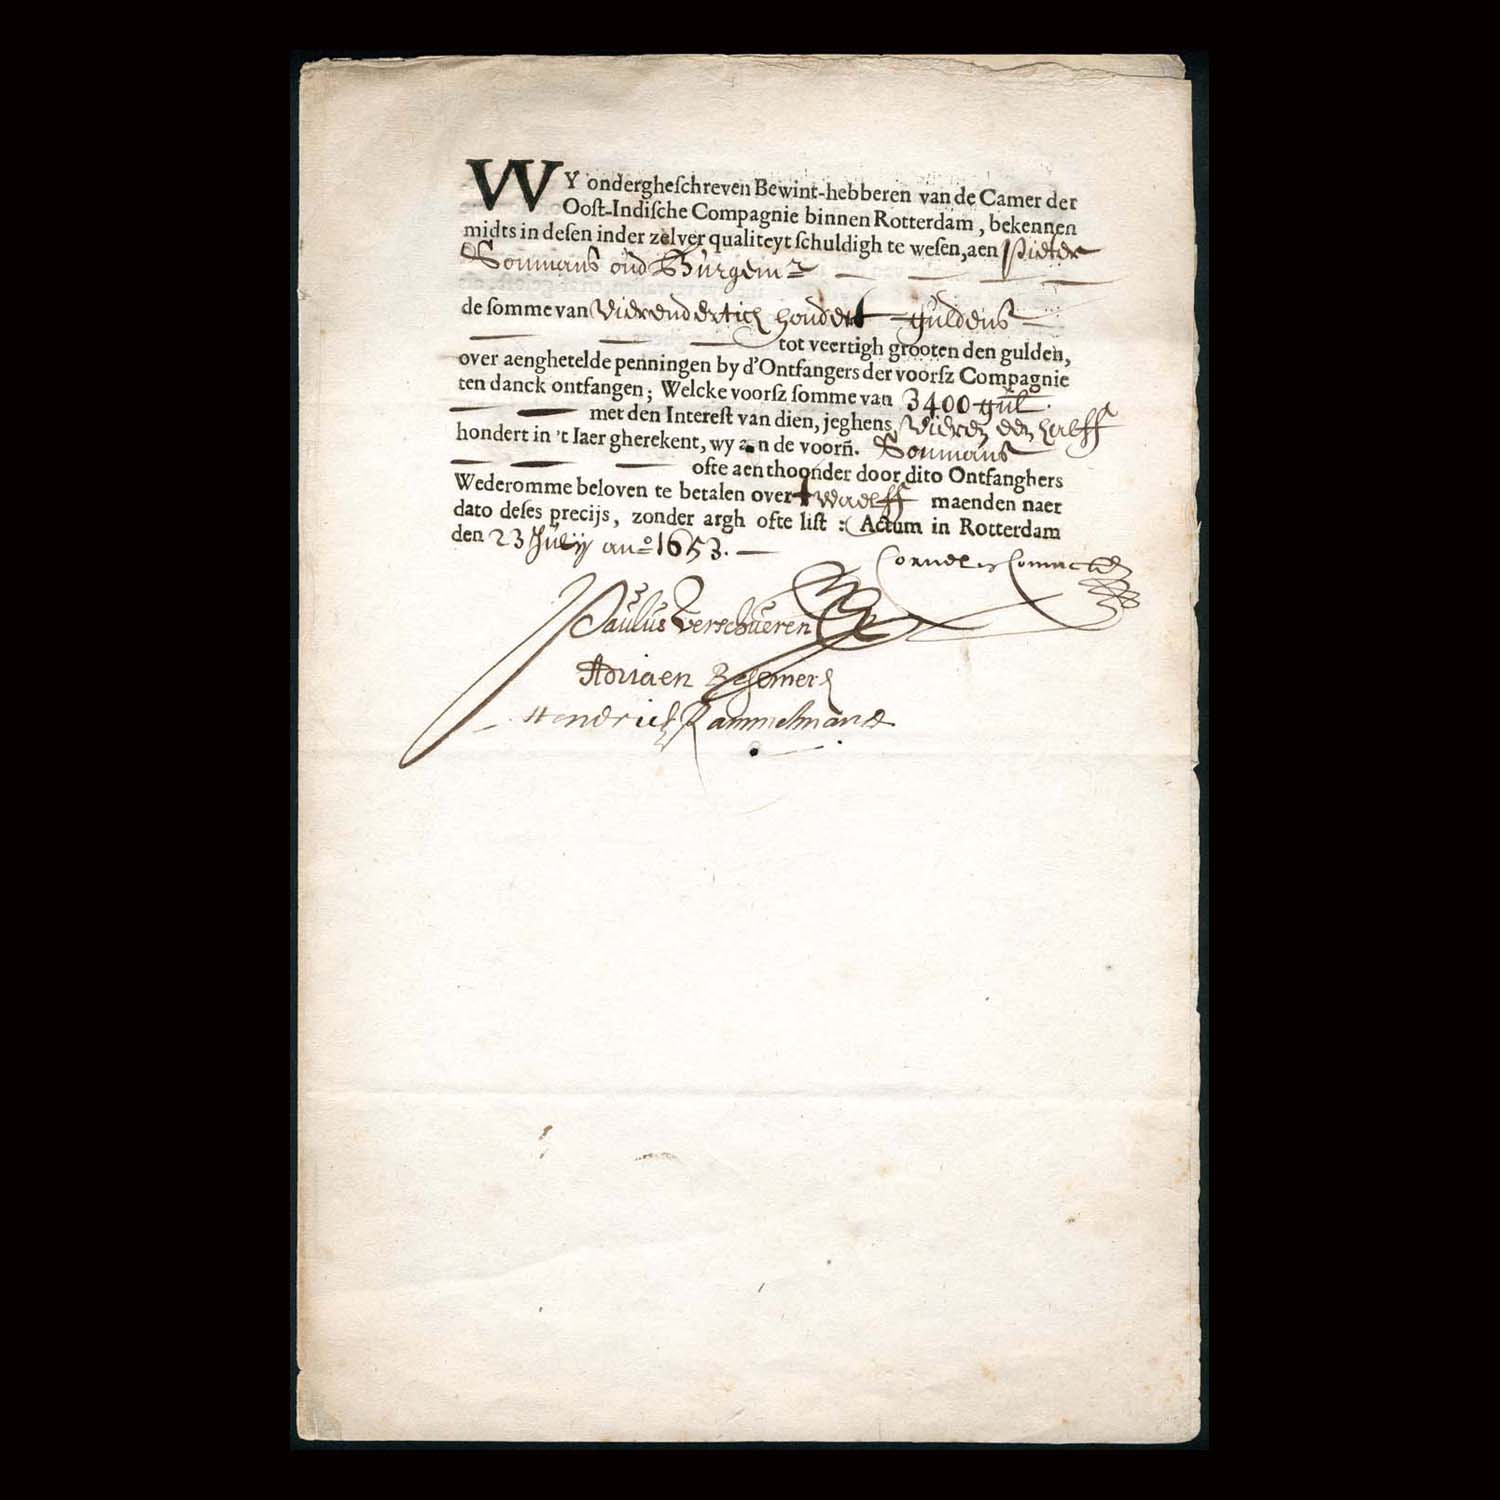 WY ondergheſchreven Bewint-hebberen van de Camer der
Ooſt-Indiſche Compagnie binnen Rotterdam, bekennen
midts in deſen inder zelver qualiteyt ſchuldigh te weſen, aen Pieter
Sonmans oud Burgemr
de ſomme van Vierendertich hondert guldens
tot veertigh grooten den gulden,
over aenghetelde penningen by d'Ontfangers der voorſz Compagnie
ten danck ontfangen; Welcke voorſz ſomme van 3400 gul.
met den Intereſt van dien, jeghens Vier en een halff
hondert in 't Iaer gherekent, wy aen de voorñ. Sonmans
ofte aen thoonder door dito Ontfanghers
Wederomme beloven te betalen over twaelff maenden naer
dato deſes precijs, zonder argh ofte liſt: Actum in Rotterdam
den 23 Julij ano 1653.
Cornelis
Paulus Verschueren
Adriaen Besemer
Hendrick